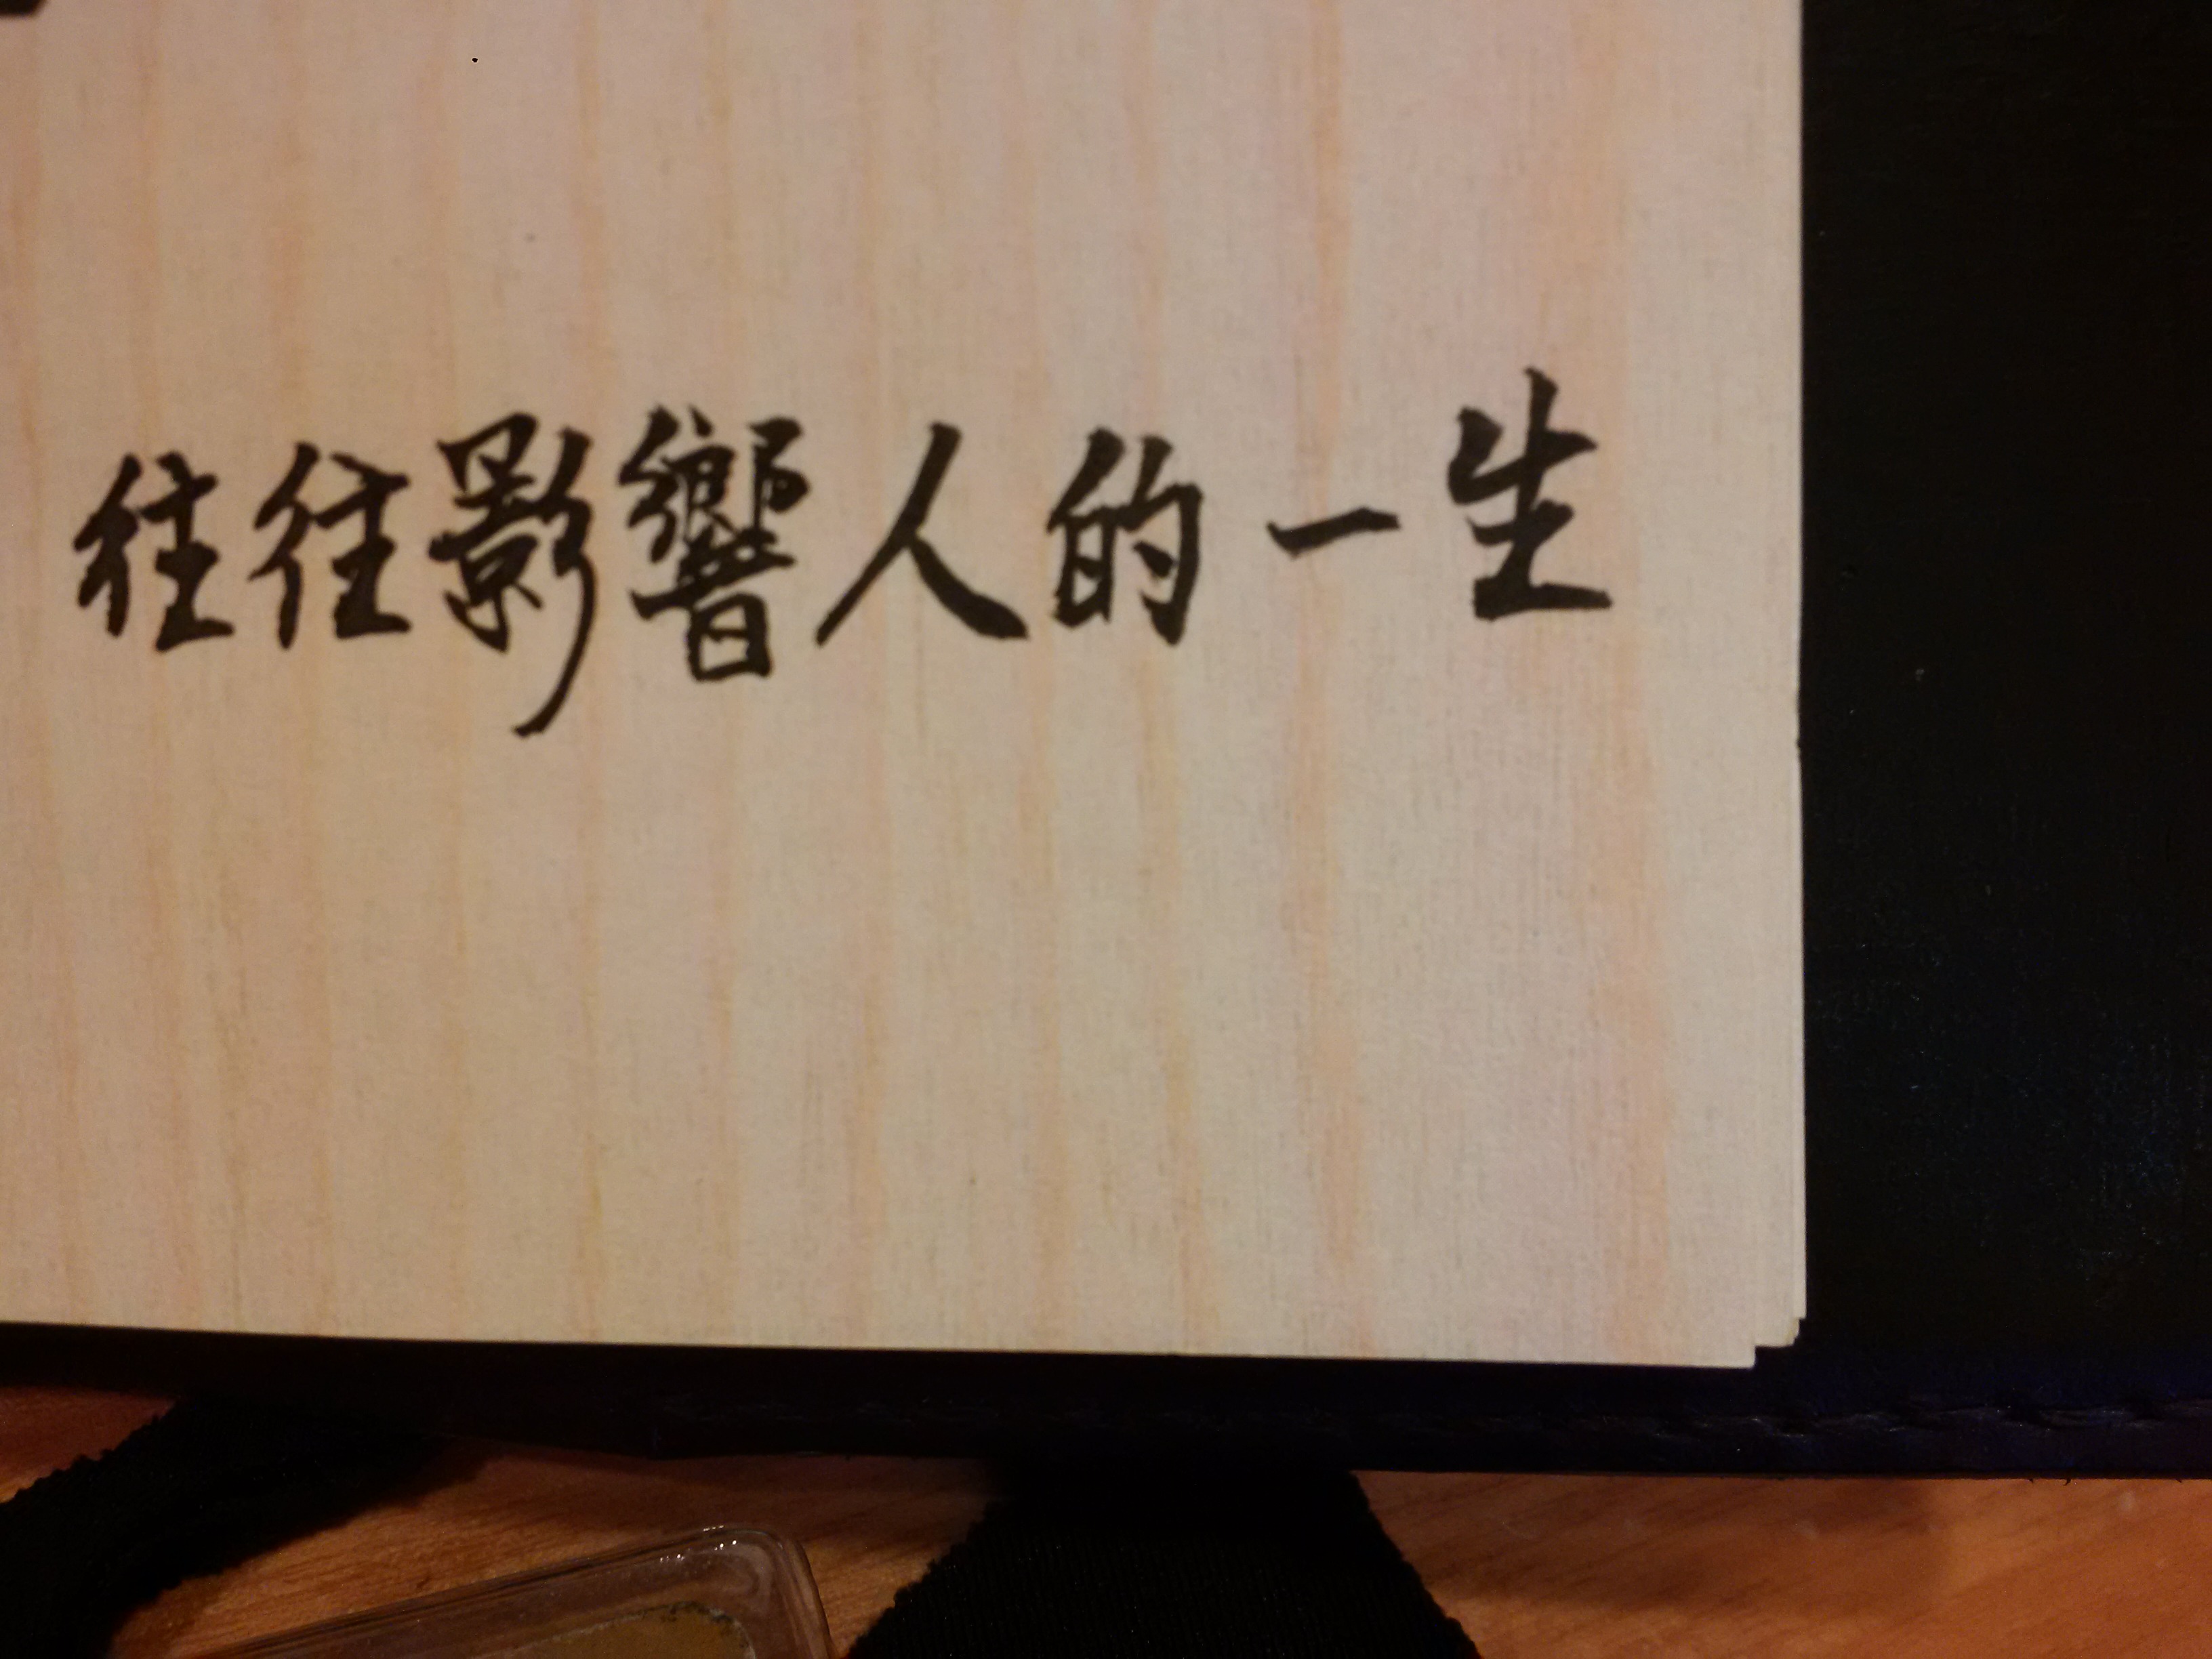 往往影響人的一生